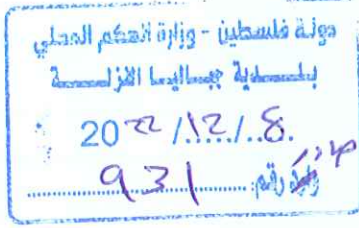 دولة فلسطين - وزارة الحكم المحلي
بلدية جباليا النزلة
20٢٢ /12/ 8
رقم 931